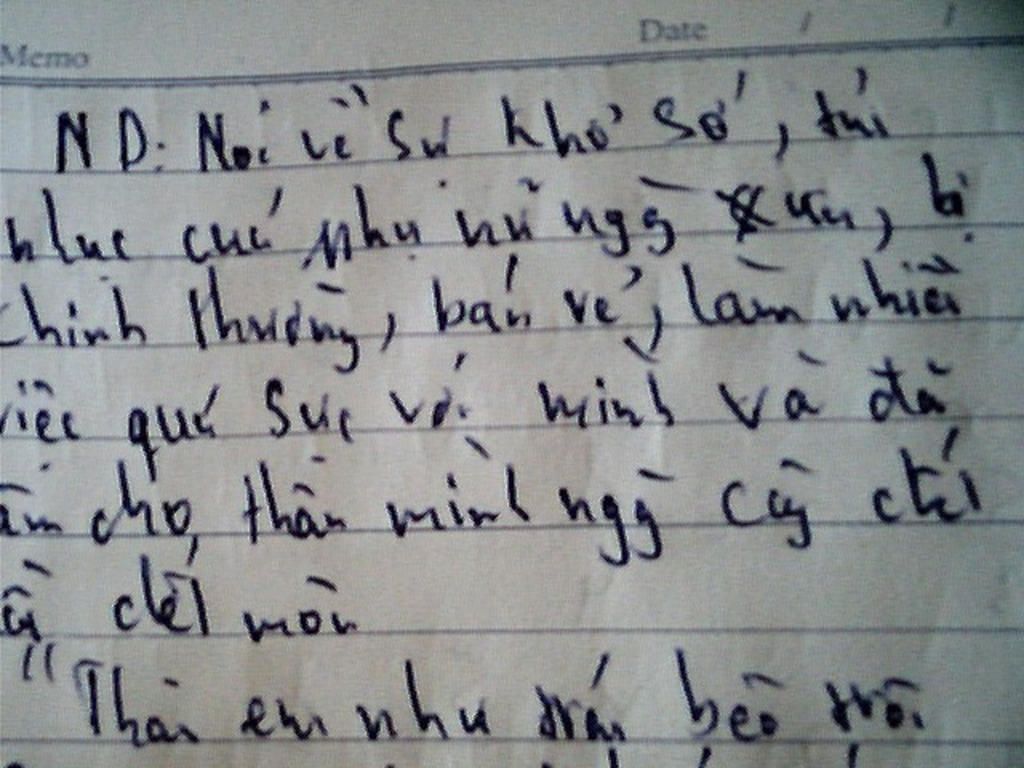 Memo Date / /
ND: Nói về sự khổ sở, tủi
nhục cuả phụ nữ ngg xưa, bị
chinh thường, bán rẻ, làm nhiều
việc quá sức với mình và đã
làm cho thân mình ngg cg chết
dần chết mòn
"Thân em như trái bèo trôi